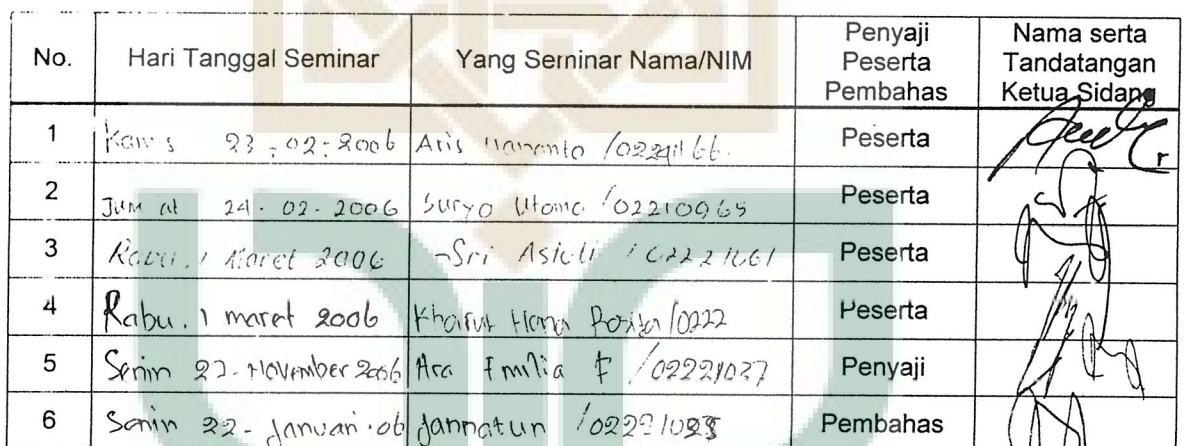 No. Hari Tanggal Seminar Yang Serninar Nama/NIM Penyaji Peserta Pembahas Nama serta Tandatangan Ketua Sidang
1 Kamis 23-02-2006 Aris Peserta
2 Jum at 24-02-2006 Suryo Utomo /02210965 Peserta
3 Rabu. 1 Maret 2006 Sri Peserta
4 Rabu. 1 maret 2006 Khairut Hana /0222 Peserta
5 Senin November 2006 Ara Emilia F /02221027 Penyaji
6 Senin 22-Januari-06 Jannatun Pembahas